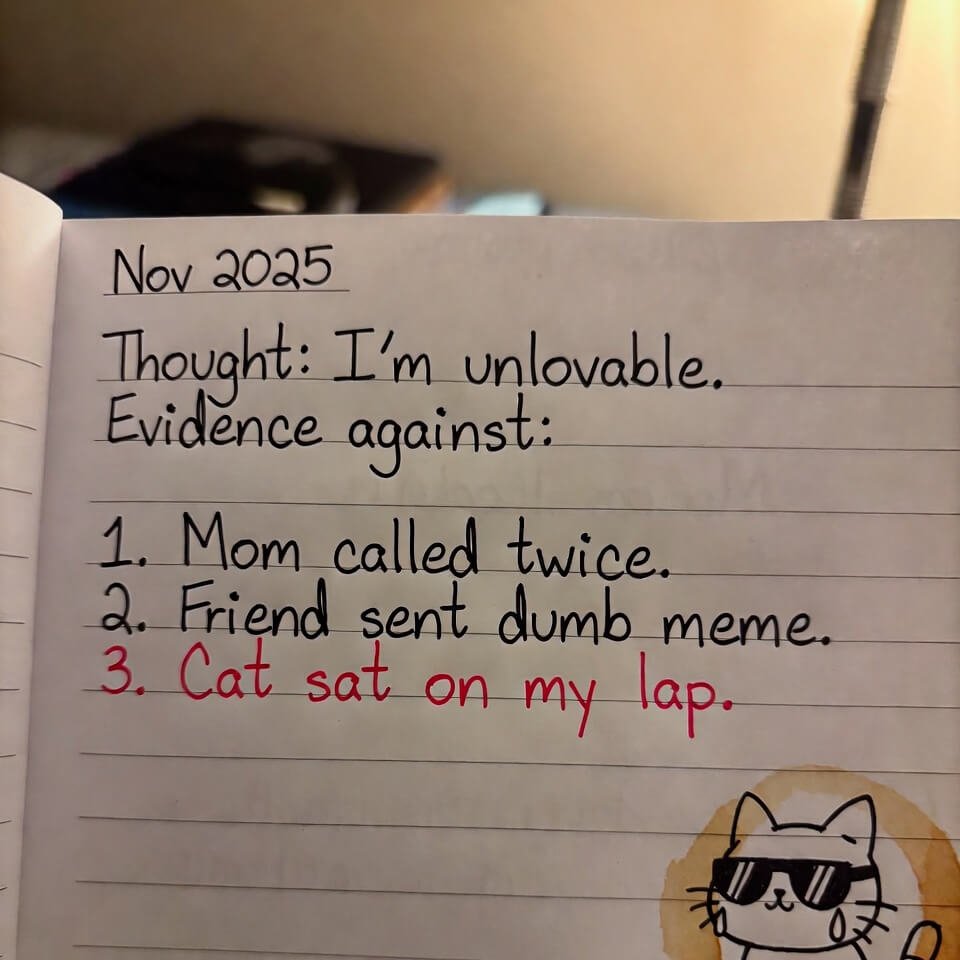 Nov 2025
Thought: I'm unlovable.
Evidence against:
1. Mom called twice.
2. Friend sent dumb meme.
3. Cat sat on my lap.